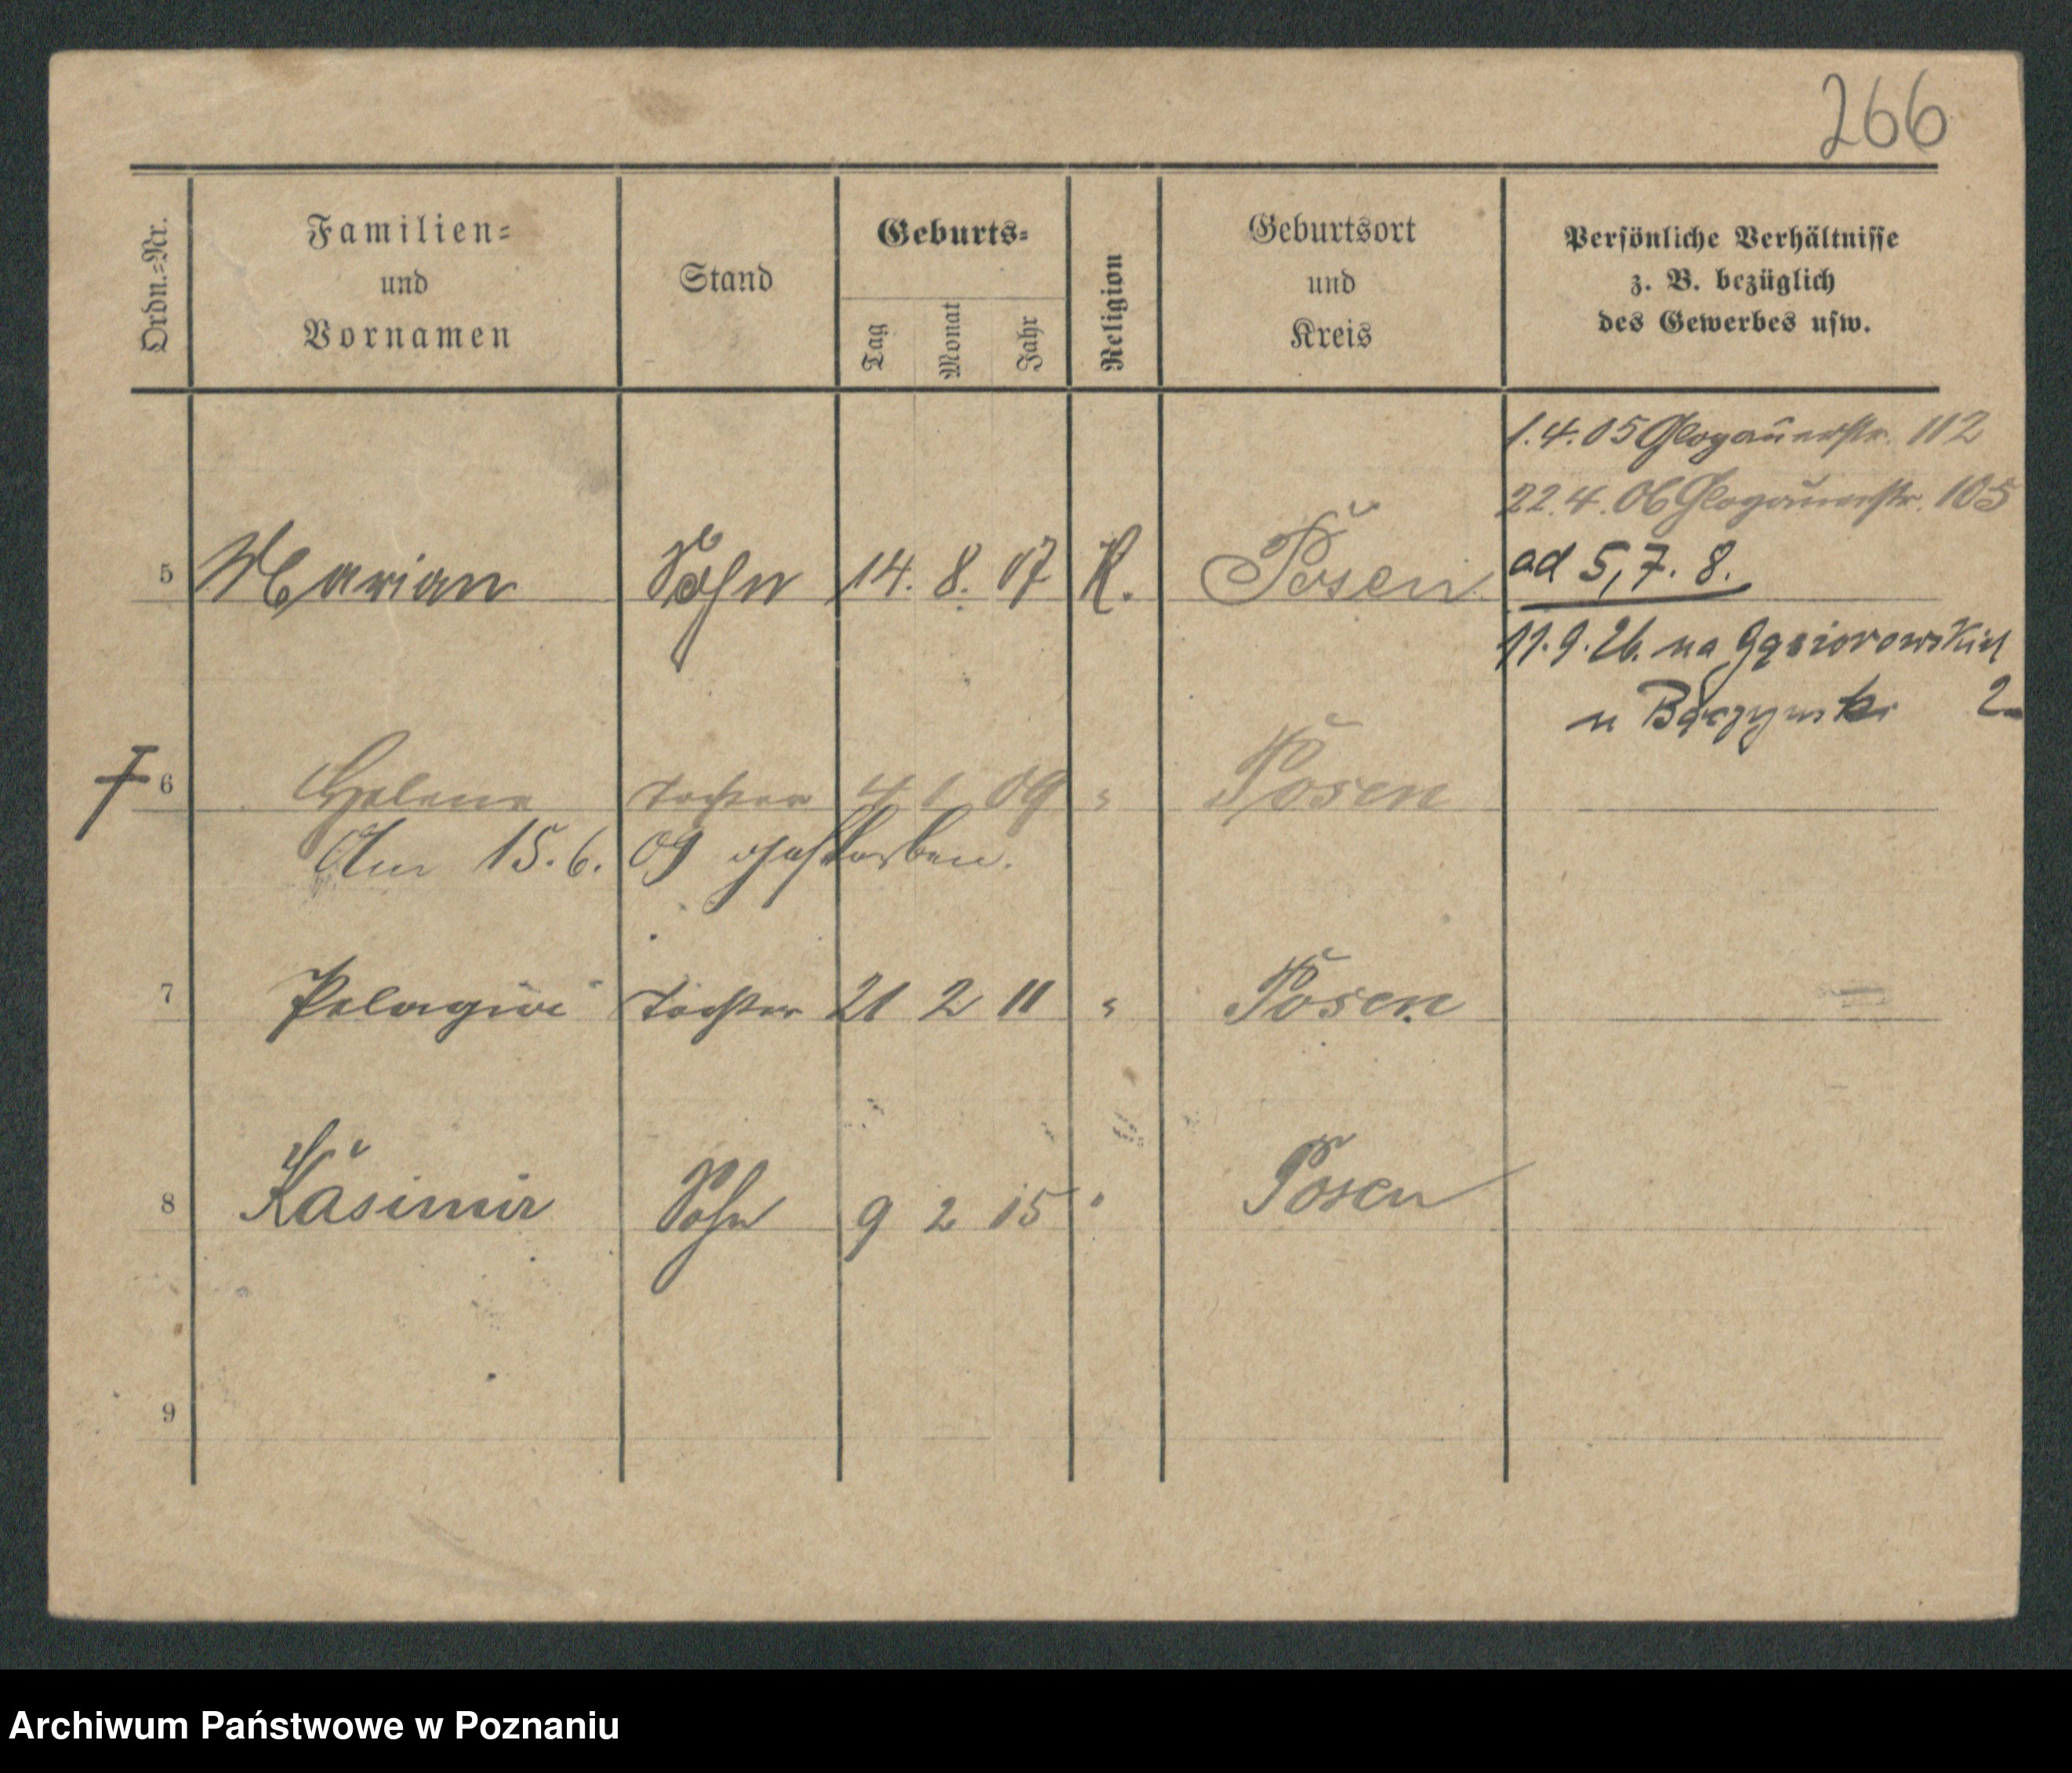 266
Ordn.-Nr.
Familien-
und
Vornamen
Stand
Geburts-
Tag
Monat
Jahr
Religion
Geburtsort
und
Kreis
Persönliche Verhältnisse
z. B. bezüglich
des Gewerbes usw.
1.4.05 Glogauerstr. 112
22.4.06 Glogauerstr. 105
5 Marian Sohn 14. 8. 07 K. Posen
ad 5,7.8.
11.9.26. na Gąsiorowskich
u 2
† 6 Helena Tochter 4 1 09 " Posen
Am 15.6.09 gestorben.
7 Pelagia Tochter 21 2 11 " Posen
8 Kasimir Sohn 9 2 15 " Posen
9
Archiwum Państwowe w Poznaniu